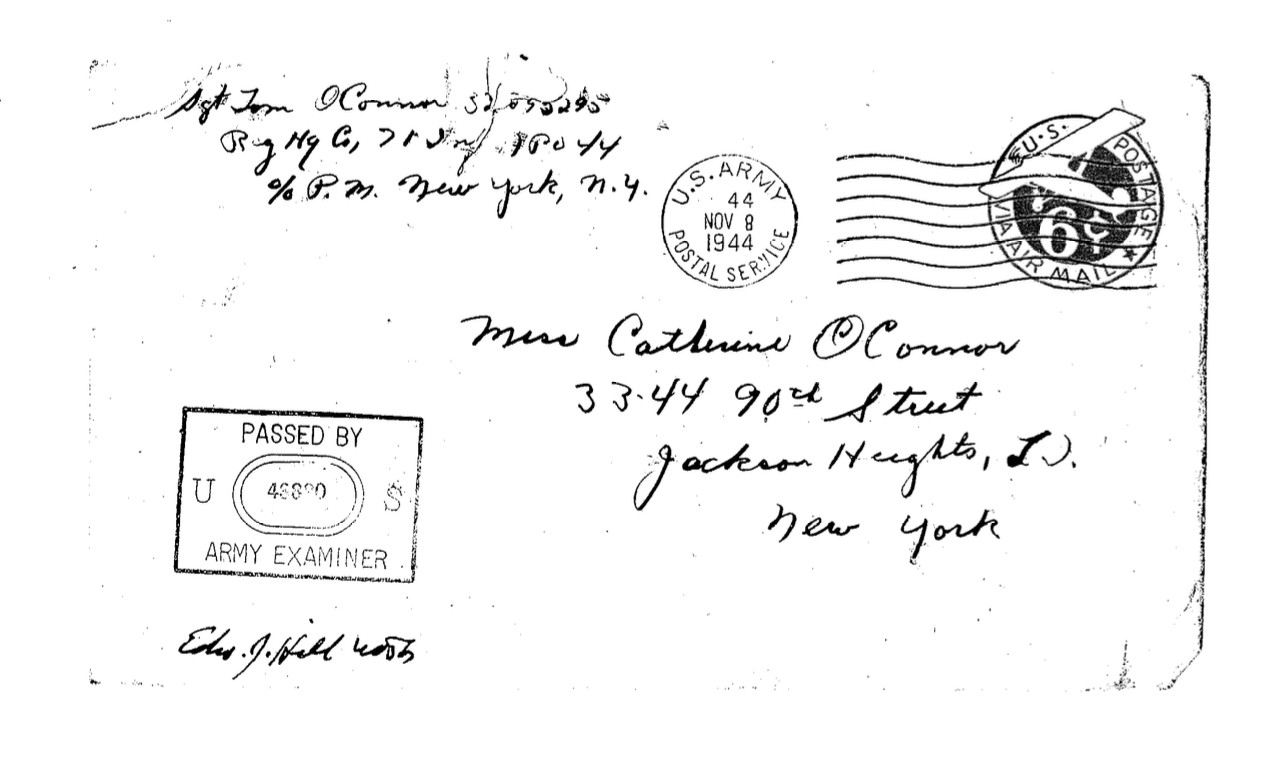 Sgt Tom O'Connor
Reg Hq Co, 71 Inf APO 44
c/o P.M. New York, N.Y.
U.S. ARMY
44
NOV 8
1944
POSTAL SERVICE
U.S. POSTAGE
6¢
VIA AIR MAIL
Miss Catherine O'Connor
33-44 90th Street
Jackson Heights, L.I.
New York
PASSED BY
U S
ARMY EXAMINER
Edw. J. Hill